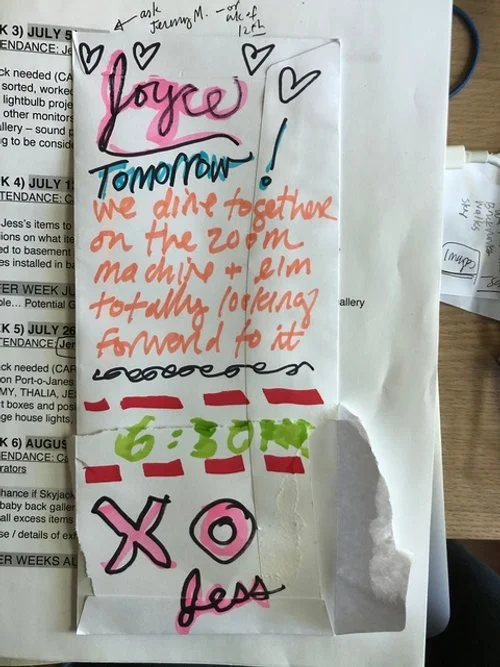 ask
Jeremy M. — or wk of
12th
Joyce
Tomorrow!
we dine together
on the zoom
machine + eim
totally looking
forward to it
6:30
XO
Jess
K 3) JULY 5
ENDANCE: Je
ck needed (CA
sorted, worke
lightbulb proje
other monitors
allery – sound p
g to be conside
K 4) JULY 1
TENDANCE: C
Jess's items to
ions on what ite
d to basement
es installed in ba
FER WEEK JU
ble... Potential G
allery
K 5) JULY 26
TENDANCE: Jer
ck needed (CAR
on Port-o-Janes
MY, THALIA, JE
t boxes and pos
ge house lights,
K 6) AUGUS
rators
hance if Skyjack
baby back galler
all excess items
se / details of ex
ER WEEKS AL